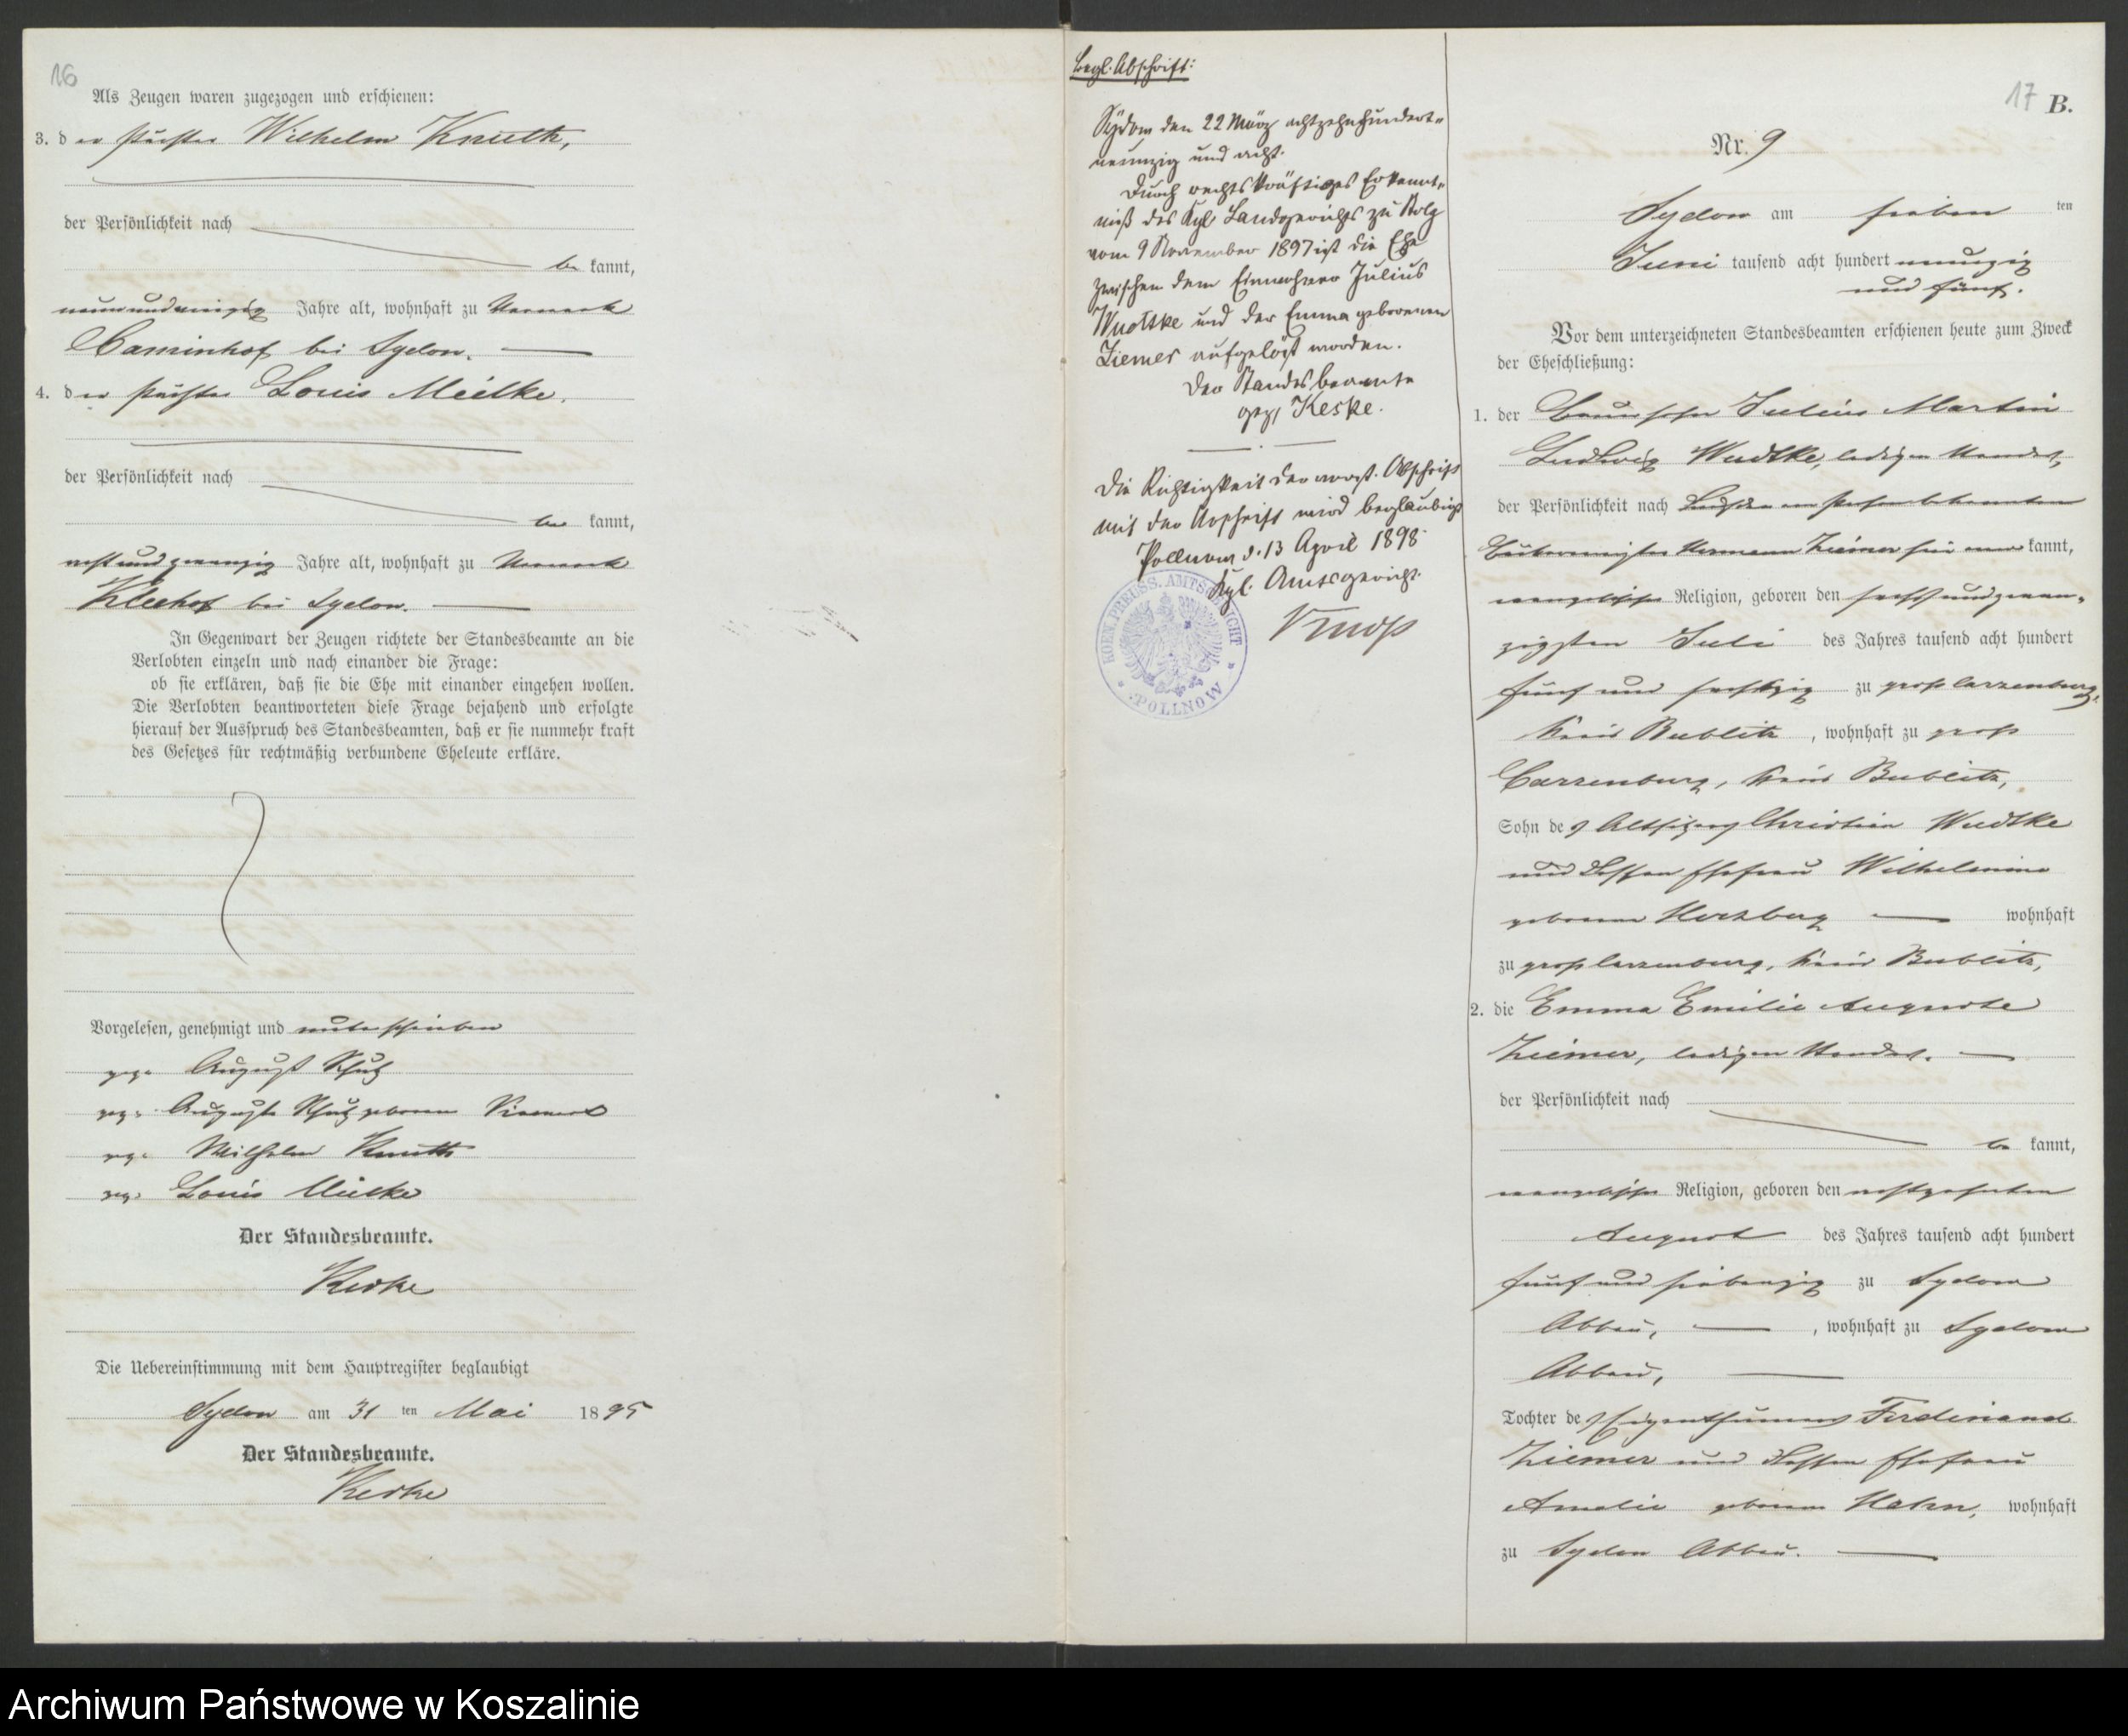 16
Als Zeugen waren zugezogen und erschienen:
3. der Pächter Wilhelm Knuth,
der Persönlichkeit nach
be kannt,
neunundvierzig Jahre alt, wohnhaft zu Vorwerk
Caminhof bei Sydow.
4. der Pächter Louis Mielke.
der Persönlichkeit nach
be kannt,
achtundzwanzig Jahre alt, wohnhaft zu Vorwerk
Kleehof bei Sydow.
In Gegenwart der Zeugen richtete der Standesbeamte an die
Verlobten einzeln und nach einander die Frage:
ob sie erklären, daß sie die Ehe mit einander eingehen wollen.
Die Verlobten beantworteten diese Frage bejahend und erfolgte
hierauf der Ausspruch des Standesbeamten, daß er sie nunmehr kraft
des Gesetzes für rechtmäßig verbundene Eheleute erkläre.
Vorgelesen, genehmigt und unterschrieben
gez. August Schulz
gez. Auguste Schulz geborene
gez. Wilhelm Knuth
gez. Louis Mielke
Der Standesbeamte.
Keske
Die Uebereinstimmung mit dem Hauptregister beglaubigt
Sydow am 31 ten Mai 1895
Der Standesbeamte.
Keske
Begl. Abschrift:
Sydow den 22 März achtzehnhundert-
neunzig und acht.
Durch rechtskräftiges Erkennt-
niß des Kgl. Landgerichts zu Stolp
vom 9 November 1897 ist die Ehe
zwischen dem Einwohner Julius
Wudtke und der Emma geborenen
Ziemer aufgelöst worden.
Der Standesbeamte
gez. Keske.
Die Richtigkeit der vorst. Abschrift
mit der Urschrift wird beglaubigt
Pollnow d. 13 April 1898.
Kgl. Amtsgericht.
KOEN. PREUSS. AMTSGERICHT
* POLLNOW *
17
B.
Nr. 9
Sydow am sieben ten
Juni tausend acht hundert neunzig
und fünf.
Vor dem unterzeichneten Standesbeamten erschienen heute zum Zweck
der Eheschließung:
1. der Julius Martin
Ludwig Wudtke, ledigen Standes,
der Persönlichkeit nach
Hermann Ziemer kannt,
evangelischer Religion, geboren den sechsundzwan-
zigsten Juli des Jahres tausend acht hundert
fünf und sechszig zu groß Carzenburg,
Kreis Bublitz, wohnhaft zu groß
Carzenburg, Kreis Bublitz,
Sohn des Altsitzers Christian Wudtke
und dessen Ehefrau Wilhelmine
geborene Herzberg wohnhaft
zu groß Carzenburg, Kreis Bublitz,
2. die Emma Emilie Auguste
Ziemer, ledigen Standes.
der Persönlichkeit nach
be kannt,
evangelischer Religion, geboren den achtzehnten
August des Jahres tausend acht hundert
fünf und siebenzig zu Sydow
Abbau, wohnhaft zu Sydow
Abbau,
Tochter des Eigenthümers Ferdinand
Ziemer und dessen Ehefrau
Amalie geborene Hahn, wohnhaft
zu Sydow Abbau.
Archiwum Państwowe w Koszalinie